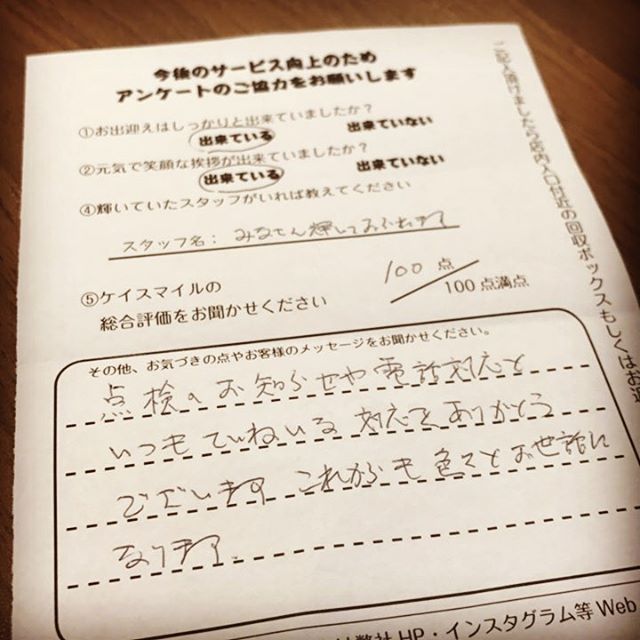 今後のサービス向上のため
アンケートのご協力をお願いします
①お出迎えはしっかりと出来ていましたか？
出来ている 出来ていない
②元気で笑顔な挨拶が出来ていましたか？
出来ている 出来ていない
④輝いていたスタッフがいれば教えてください
スタッフ名： みなさん輝いて
⑤ケイスマイルの
総合評価をお聞かせください
100 点
100点満点
その他、お気づきの点やお客様のメッセージをお聞かせください。
点検のお知らせや電話対応と
いつもていねいな対応をありがとう
ございます これからも色々とお世話に
なります
ご記入頂けましたら店内入口付近の回収ボックスもしくはお近
弊社HP・インスタグラム等Web